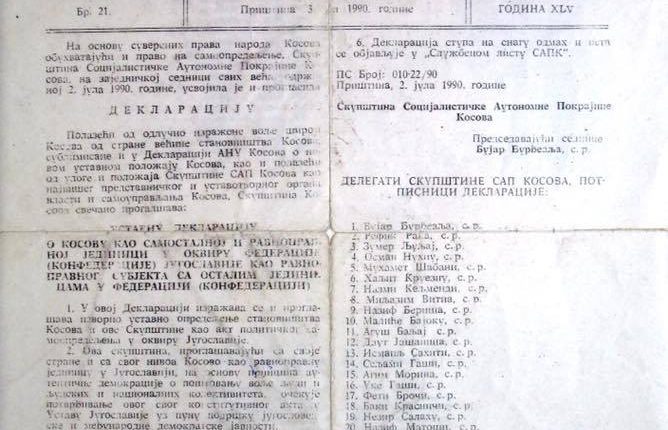 Бр. 21.
Приштина 3 јул 1990. године
ГОДИНА XLV
На основу суверених права народа Косова
обухватајући и право на самоопредељење, Скуп-
штина Социјалистичке Аутономне Покрајине Ко-
сова, на заједничкој седници свих већа, одрж
ној 2. јула 1990. године, усвојила је и прогласила
ДЕКЛАРАЦИЈУ
Полазећи од одлучно изражене воље широм
Косова од стране већине становништва Косова,
сублимисане и у Декларацији АНУ Косова о но-
вом уставном положају Косова, као и полазећи
од улоге и положаја Скупштине САП Косова као
највишег представничког и уставотворног органа
власти и самоуправљања Косова, Скупштина Ко-
сова свечано проглашава:
УСТАВНУ ДЕКЛАРАЦИЈУ
О КОСОВУ КАО САМОСТАЛНОЈ И РАВНОПРАВ-
НОЈ ЈЕДИНИЦИ У ОКВИРУ ФЕДЕРАЦИЈЕ
(КОНФЕДЕРАЦИЈЕ) ЈУГОСЛАВИЈЕ КАО РАВНО-
ПРАВНОГ СУБЈЕКТА СА ОСТАЛИМ ЈЕДИНИ-
ЦАМА У ФЕДЕРАЦИЈИ (КОНФЕДЕРАЦИЈИ)
1. У овој Декларацији изражава се и прог-
лашава изворно уставно опредељење становништва
Косова и ове Скупштине као акт политичког са-
моопредељења у оквиру Југославије.
2. Ова скупштина, проглашавајући са своје
стране и са свог нивоа Косово као равноправну
јединицу у Југославији, на основу принципа ау-
тентичне демократије о поштовању воље људи и
људских и националних колективитета, очекује
потврђивање овог свог конститутивног акта у
Уставу Југославије уз пуну подршку југословен-
ске и међународне демократске јавности.
6. Декларација ступа на снагу одмах и
се објављује у „Службеном листу САПК".
ПС Број: 010-22/90
Приштина, 2. јула 1990. године
Скупштина Социјалистичке Аутономне Покрајине
Косова
Председавајући седнице
Бујар Ђурђеаља, с. р.
ДЕЛЕГАТИ СКУПШТИНЕ САП КОСОВА, ПОТ-
ПИСНИЦИ ДЕКЛАРАЦИЈЕ:
1. Бујар Ђурђеаља, с.р.
2. Рефик Рака, с. р.
3. Зумер Љуљај, с. р.
4. Осман Нухиу, с. р.
5. Мухамет Шабани, с. р.
6. Халит Круезиу, с. р.
7. Назми Кељменди, с. р.
8. Миљазим Витиа, с. р.
9. Назиф Бериша, с. р.
10. Малиће Бајоку, с. р.
11. Агуш Баљај с. р.
12. Јашаница, с. р.
13. Исмаиљ Сахити, с. р.
14. Сељами Гаши, с. р.
15. Агим Морина, с. р.
16. Уке Гаши, с. р.
17. Фети Брочи, с. р.
18. Баки Краснићи, с. р.
19. Незир Салаху, с. р.
20. Назиф Матоши, с. р.